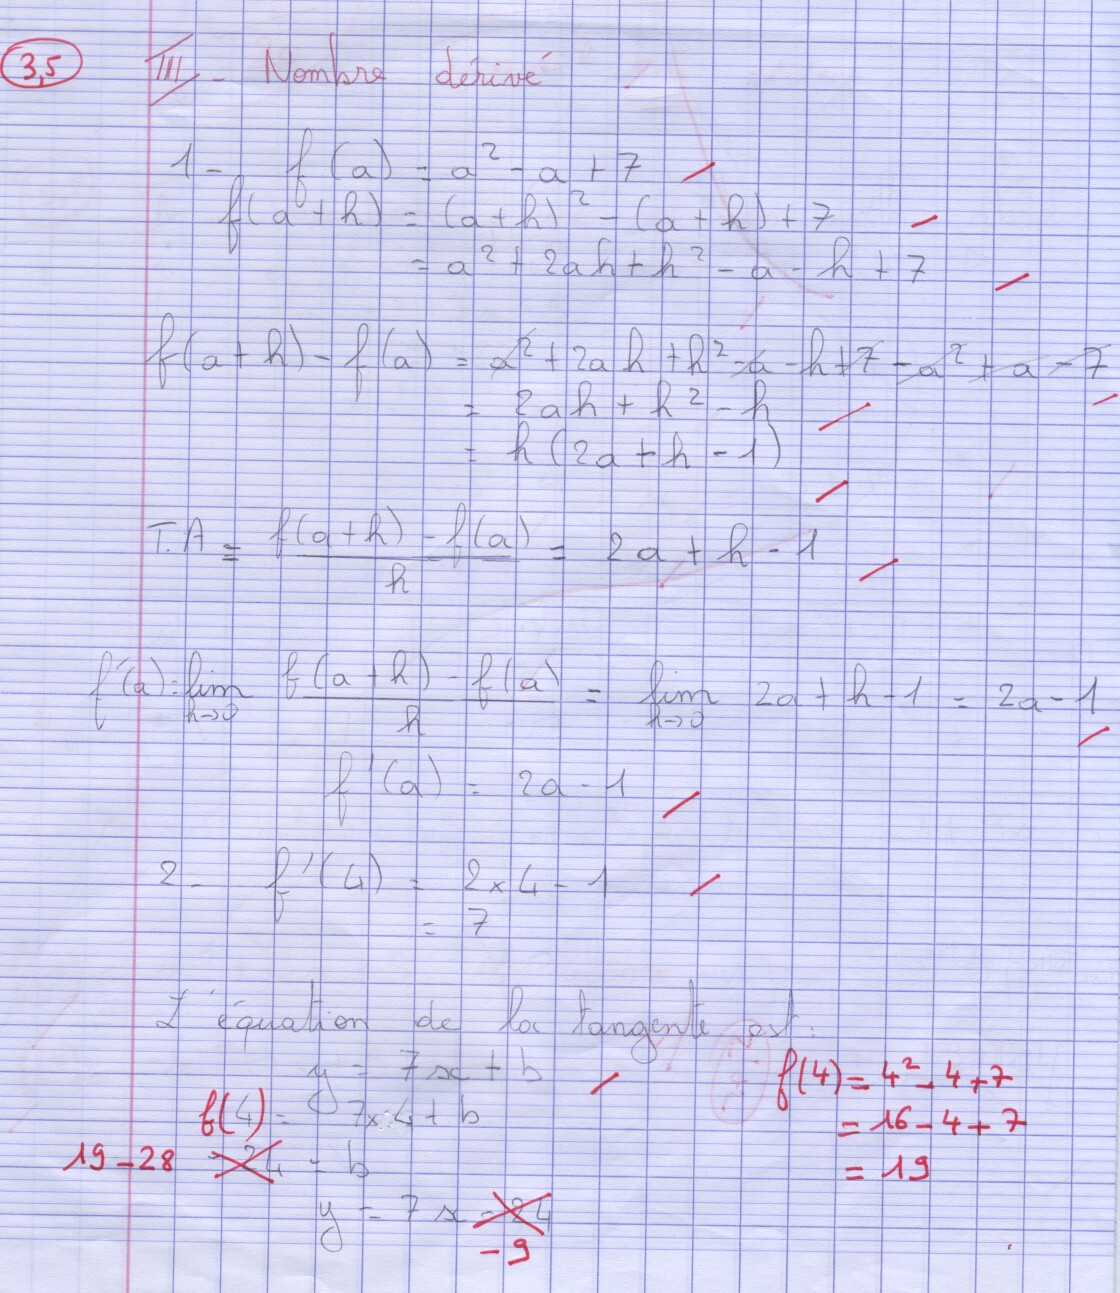 3,5
III - Nombre dérivé
1 - f(a) = a² - a + 7
f(a+h) = (a+h)² - (a+h) + 7
= a² + 2ah + h² - a - h + 7
f(a+h) - f(a) = a² + 2ah + h² - a - h + 7 - a² + a - 7
= 2ah + h² - h
= h(2a + h - 1)
T.A = f(a+h) - f(a) / h = 2a + h - 1
f'(a) = lim h→0 f(a+h) - f(a) / h = lim h→0 2a + h - 1 = 2a - 1
f'(a) = 2a - 1
2 - f'(4) = 2×4 - 1
= 7
L'équation de la tangente est :
y = 7x + b
f(4) = 7×4 + b
19 - 28 - 24 = b
y = 7x - 24
- 9
f(4) = 4² - 4 + 7
= 16 - 4 + 7
= 19